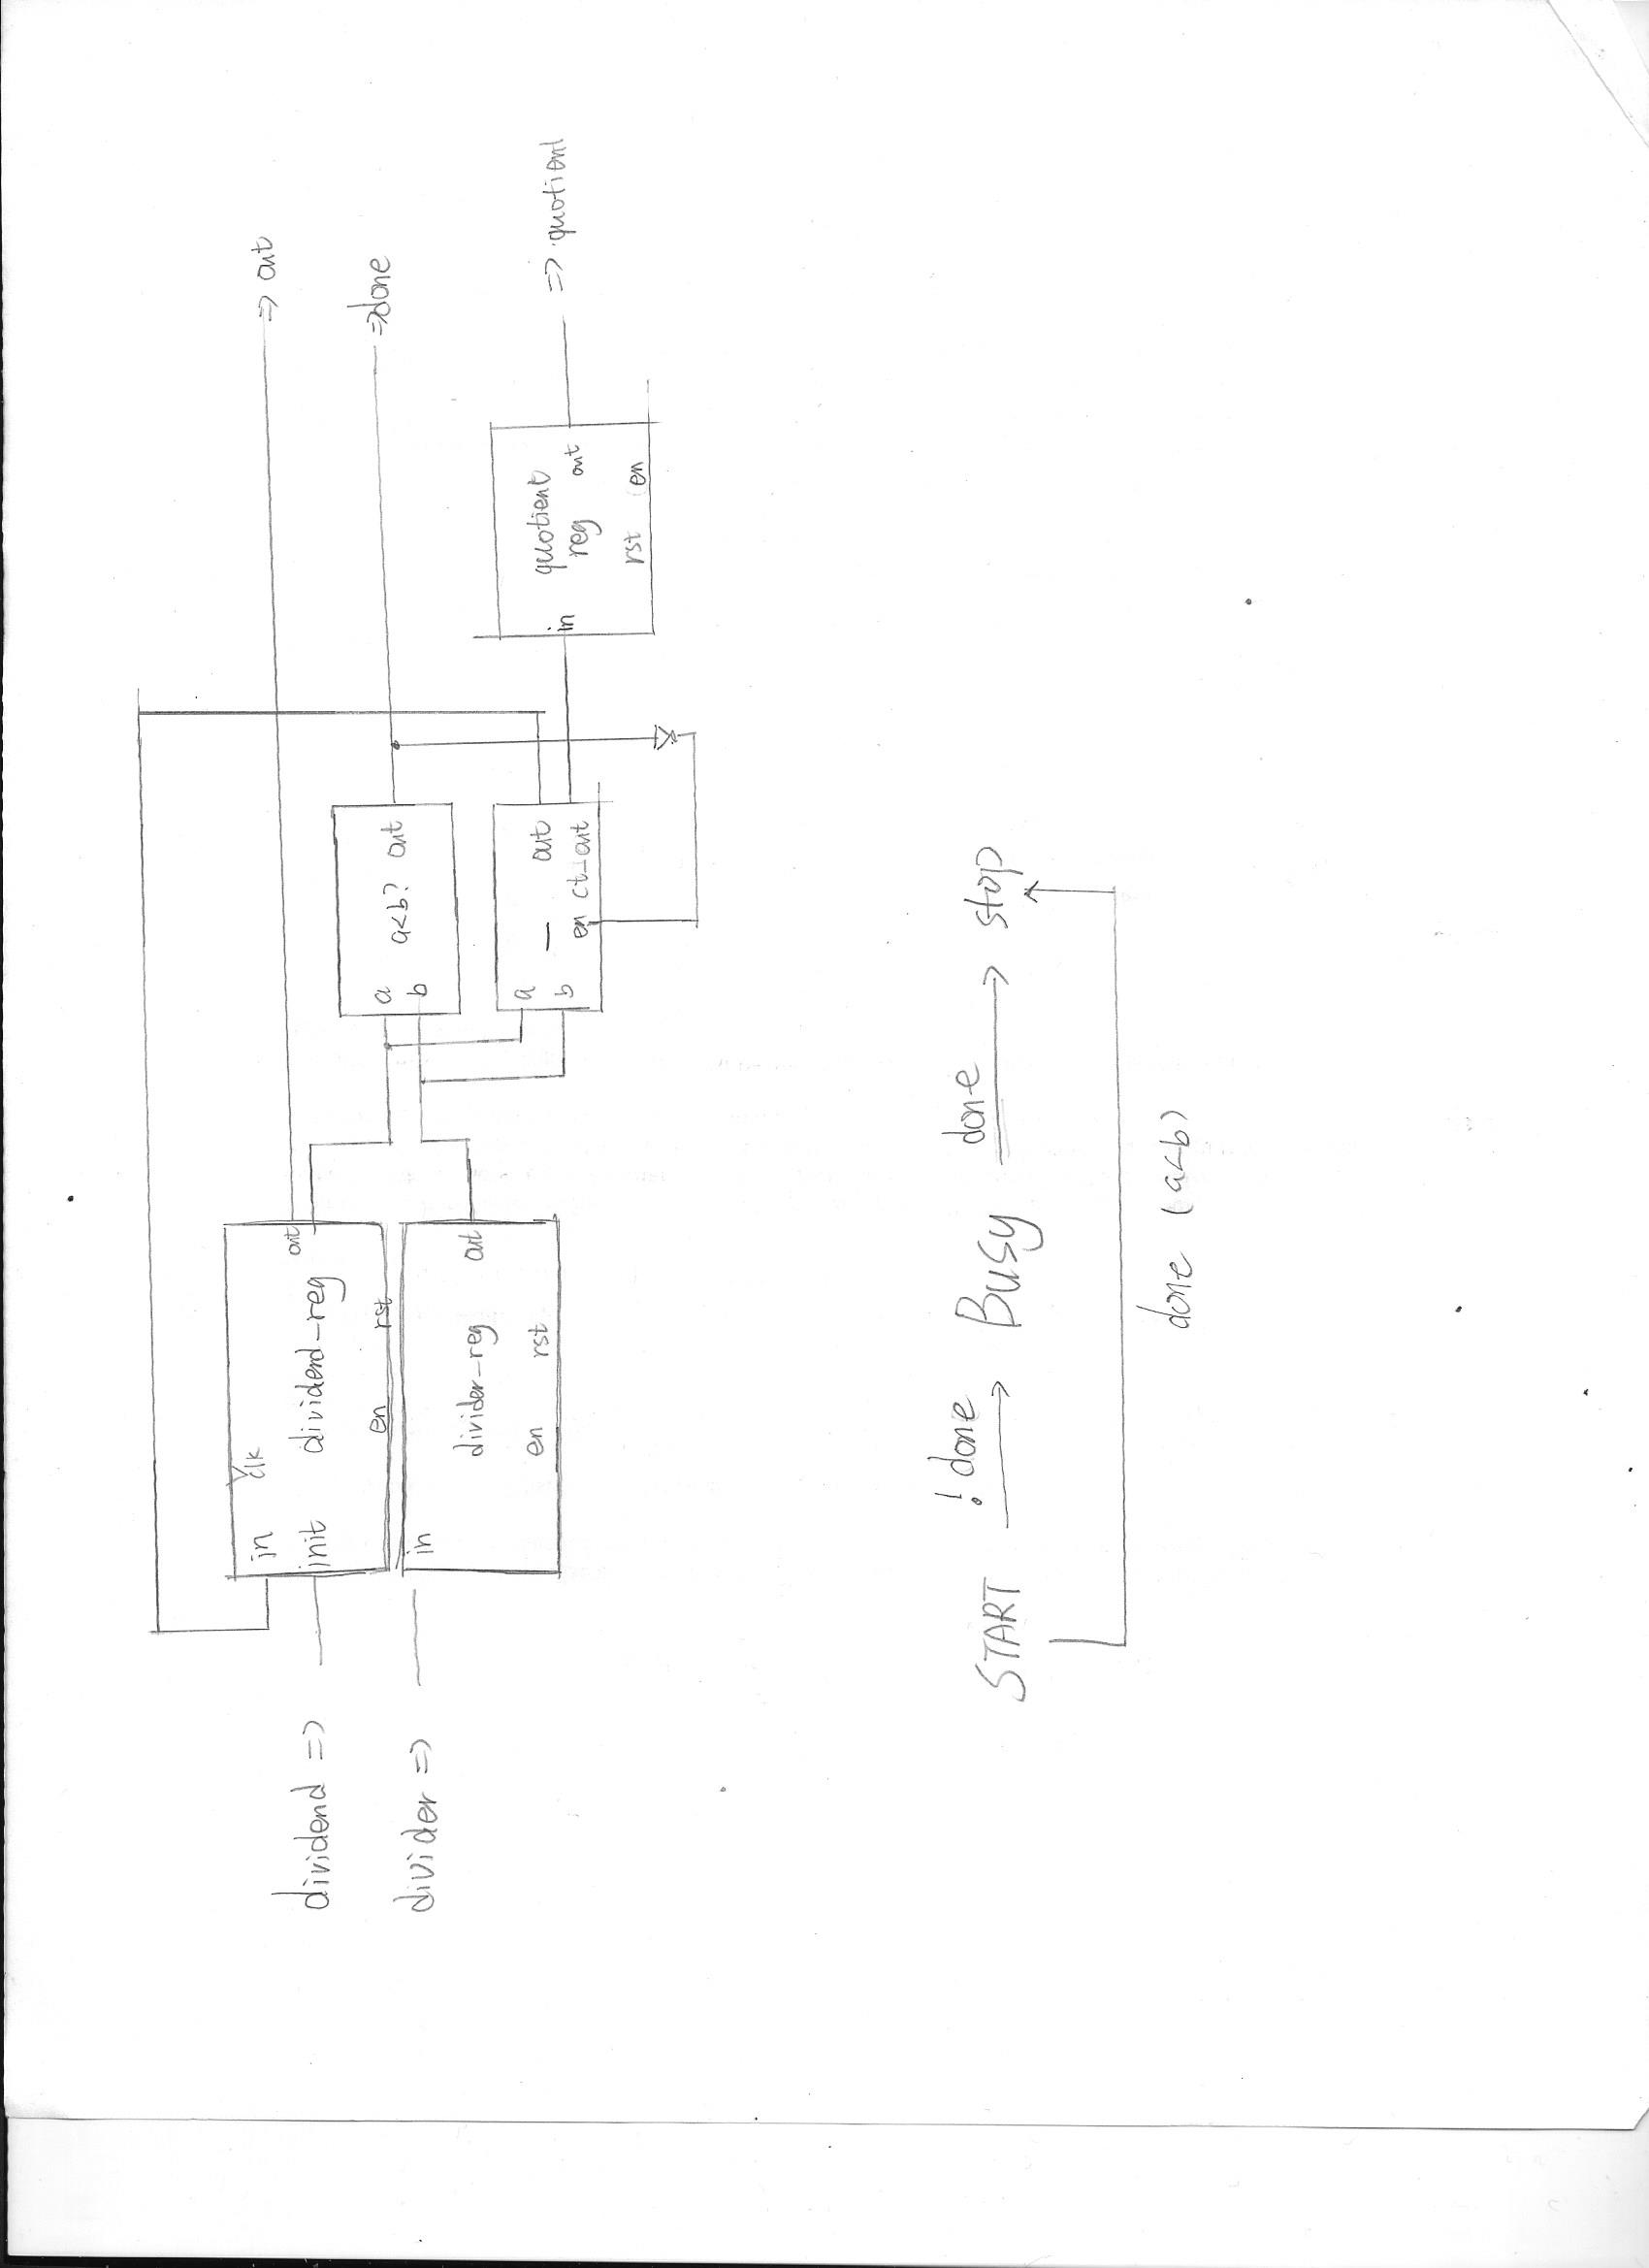 in clk
out
dividend =>
init dividend_reg
en rst
=> out
divider =>
in
divider_reg out
en rst
a a<b? out
b
=>done
a
— out
b en ct_out
quotient
in reg out
rst en
=> quotient
START ! done Busy done stop
done (a<b)